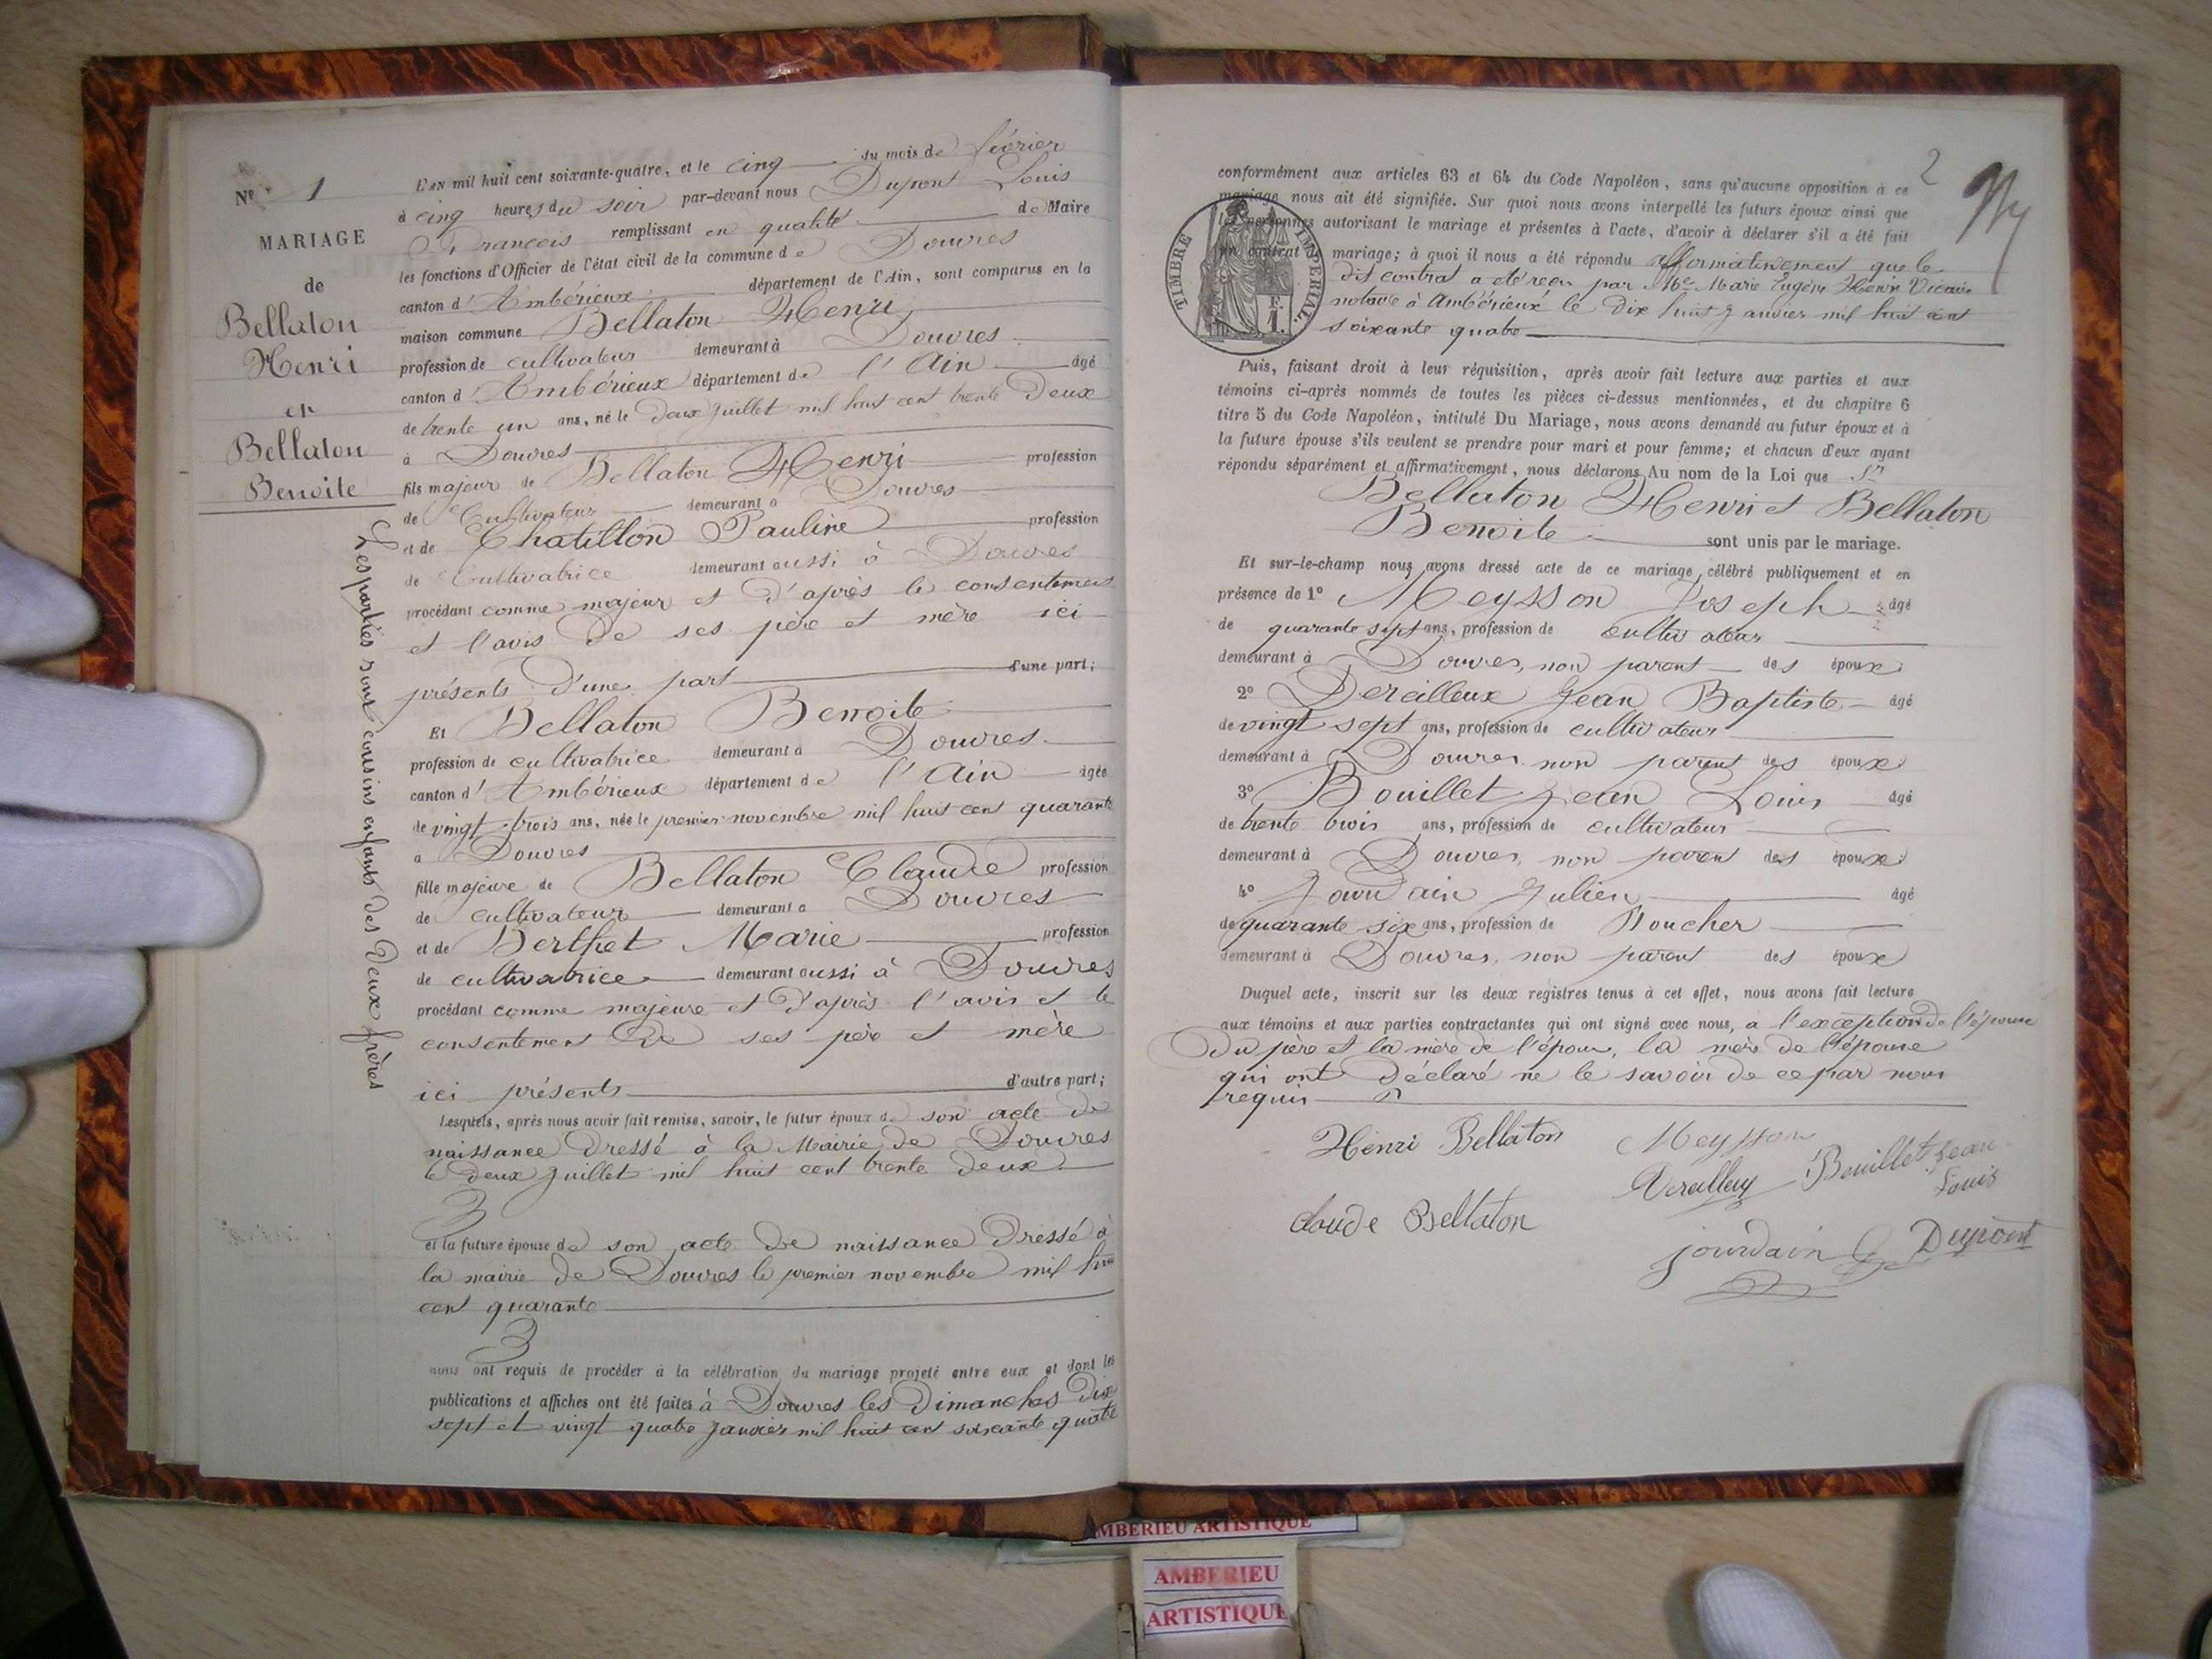 Nº 1
MARIAGE
de
Bellaton
Henri
et
Bellaton
Benoite
Les parties sont cousins enfants des deux frères
L'AN mil huit cent soixante-quatre, et le cinq du mois de février
à cinq heures du soir par-devant nous Dupont Louis
François remplissant en qualité de Maire
les fonctions d'Officier de l'état civil de la commune de Douvres
canton d'Ambérieux département de l'Ain, sont comparus en la
maison commune Bellaton Henri
profession de cultivateur demeurant à Douvres
canton d'Ambérieux département de l'Ain âgé
de trente un ans, né le deux juillet mil huit cent trente deux
à Douvres
fils majeur de Bellaton Henri profession
de Cultivateur demeurant à Douvres
et de Chatillon Pauline profession
de Cultivatrice demeurant aussi à Douvres
procédant comme majeur et d'après le consentement
et l'avis de ses père et mère ici
présents d'une part d'une part;
Et Bellaton Benoite
profession de cultivatrice demeurant à Douvres
canton d'Ambérieux département de l'Ain âgée
de vingt trois ans, née le premier novembre mil huit cent quarante
à Douvres
fille majeure de Bellaton Claude profession
de cultivateur demeurant à Douvres
et de Berthet Marie profession
de cultivatrice demeurant aussi à Douvres
procédant comme majeure et d'après l'avis et le
consentement de ses père et mère
ici présents d'autre part;
Lesquels, après nous avoir fait remise, savoir, le futur époux de son acte de
naissance dressé à la Mairie de Douvres
le deux juillet mil huit cent trente deux
et la future épouse de son acte de naissance dressé à
la mairie de Douvres le premier novembre mil huit
cent quarante
nous ont requis de procéder à la célébration du mariage projeté entre eux et dont les
publications et affiches ont été faites à Douvres les Dimanches dix
sept et vingt quatre janvier mil huit cent soixante quatre
2
conformément aux articles 63 et 64 du Code Napoléon, sans qu'aucune opposition à ce
mariage nous ait été signifiée. Sur quoi nous avons interpellé les futurs époux ainsi que
les personnes autorisant le mariage et présentes à l'acte, d'avoir à déclarer s'il a été fait
un contrat mariage; à quoi il nous a été répondu affirmativement que le
dit contrat a été reçu par Me Marie Eugène Henri Vicaire
notaire à Ambérieux le dix huit janvier mil huit cent
soixante quatre
TIMBRE IMPERIAL
1 F.
Puis, faisant droit à leur réquisition, après avoir fait lecture aux parties et aux
témoins ci-après nommés de toutes les pièces ci-dessus mentionnées, et du chapitre 6
titre 5 du Code Napoléon, intitulé Du Mariage, nous avons demandé au futur époux et à
la future épouse s'ils veulent se prendre pour mari et pour femme; et chacun d'eux ayant
répondu séparément et affirmativement, nous déclarons Au nom de la Loi que
Bellaton Henri et Bellaton
Benoite sont unis par le mariage.
Et sur-le-champ nous avons dressé acte de ce mariage célébré publiquement et en
présence de 1º Meysson Joseph âgé
de quarante sept ans, profession de cultivateur
demeurant à Douvres, non parent des époux
2º Dereilleux Jean Baptiste âgé
de vingt sept ans, profession de cultivateur
demeurant à Douvres non parent des époux
3º Bouillet Jean Louis âgé
de trente trois ans, profession de cultivateur
demeurant à Douvres, non parent des époux
4º Jourdain Julien âgé
de quarante six ans, profession de Boucher
demeurant à Douvres, non parent des époux
Duquel acte, inscrit sur les deux registres tenus à cet effet, nous avons fait lecture
aux témoins et aux parties contractantes qui ont signé avec nous, à l'exception de l'épouse
du père et la mère de l'époux, la mère de l'épouse
qui ont déclaré ne le savoir de ce par nous
requis
Henri Bellaton Meysson
Bouillet Jean
Louis
Claude Bellaton
jourdain Dupont
AMBERIEU ARTISTIQUE
AMBERIEU
ARTISTIQUE